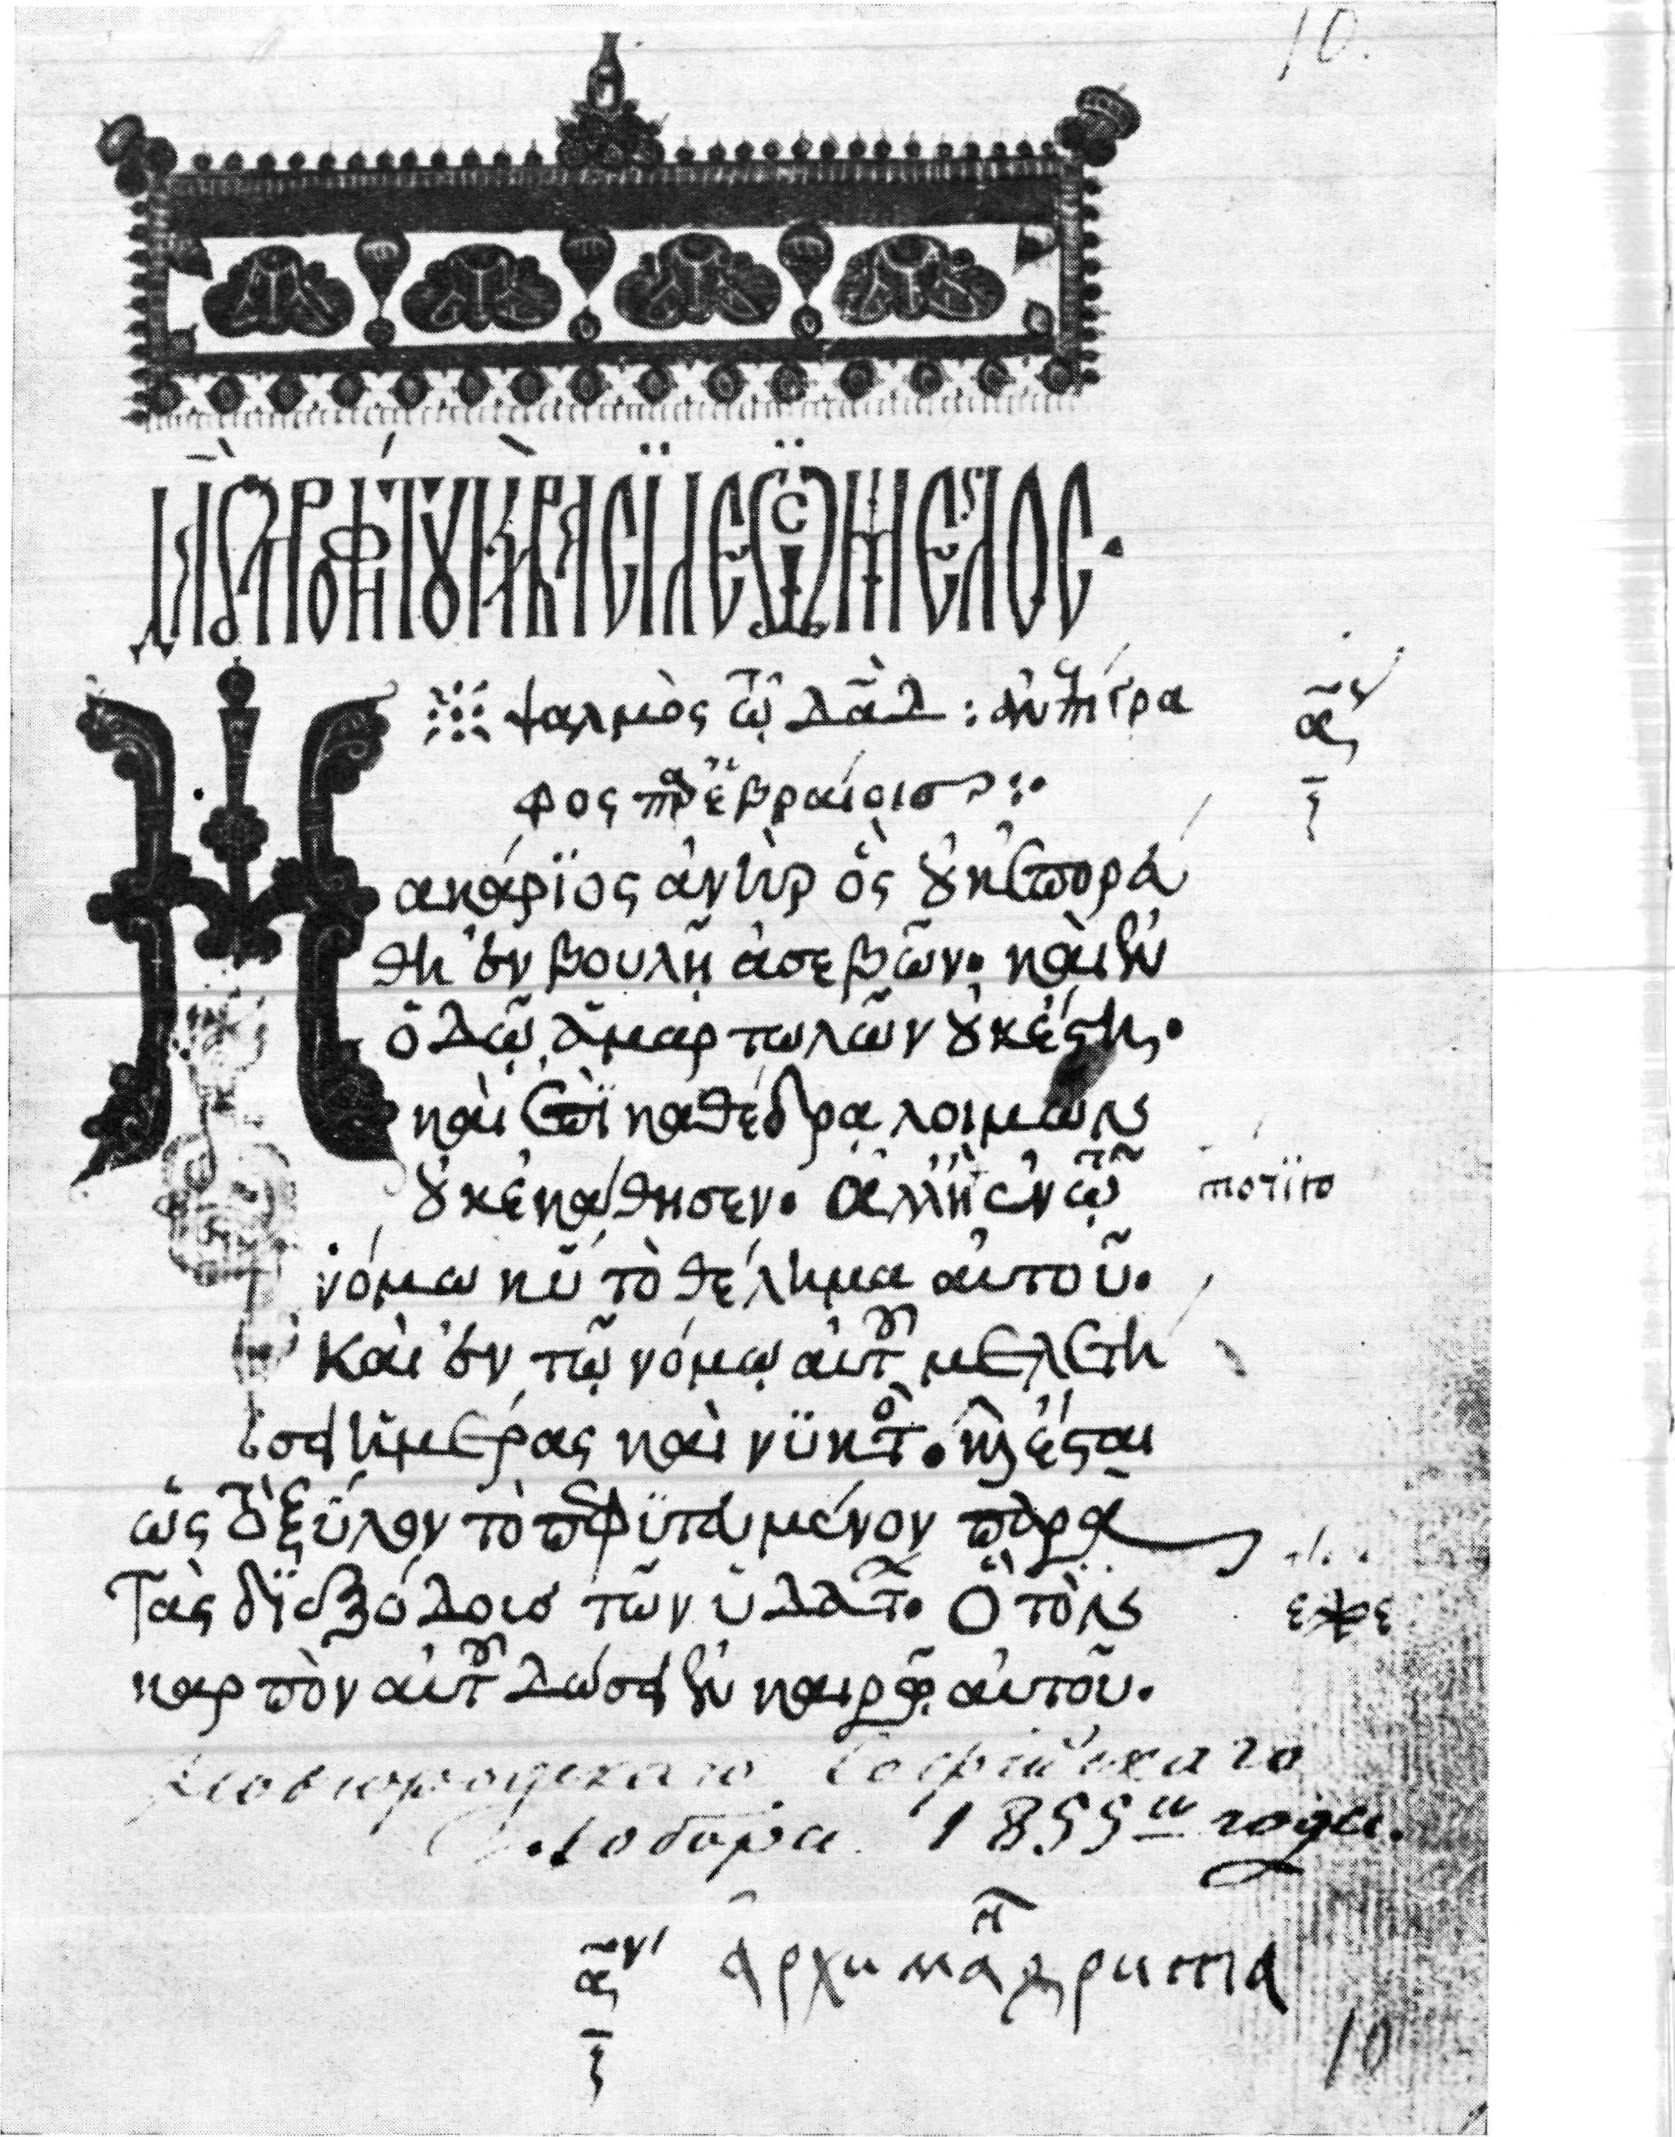 10.
ψαλμὸς τῷ δᾱδ : ἀνεπίγρα
φος παρ' ἑβραίοις :·
ακάριος ἀνὴρ ὃς οὐκ ἐπορεύ
θη ἐν βουλῇ ἀσεβῶν. καὶ ἐν
ὁδῷ ἁμαρτωλῶν οὐκ ἔστη.
καὶ ἐπὶ καθέδρα λοιμῶν
οὐκ ἐκάθησεν. ἀλλ' ἢ ἐν τῷ
νόμω κ̅υ̅ τὸ θέλημα αὐτοῦ.
Καὶ ἐν τῷ νόμῳ αὐτοῦ μελετή
σει ἡμέρας καὶ νϋκτὸς. καὶ ἔσται
ὡς τὸ ξύλον τὸ πεφϋτευμένον παρὰ
Τὰς διεξόδους τῶν ὑδάτων. Ὃ τὸν
καρπὸν αὐτοῦ δώσει ἐν καιρῷ αὐτοῦ.
Новгородскаго Софійскаго
Собора 1855го года.
архимандрита
10